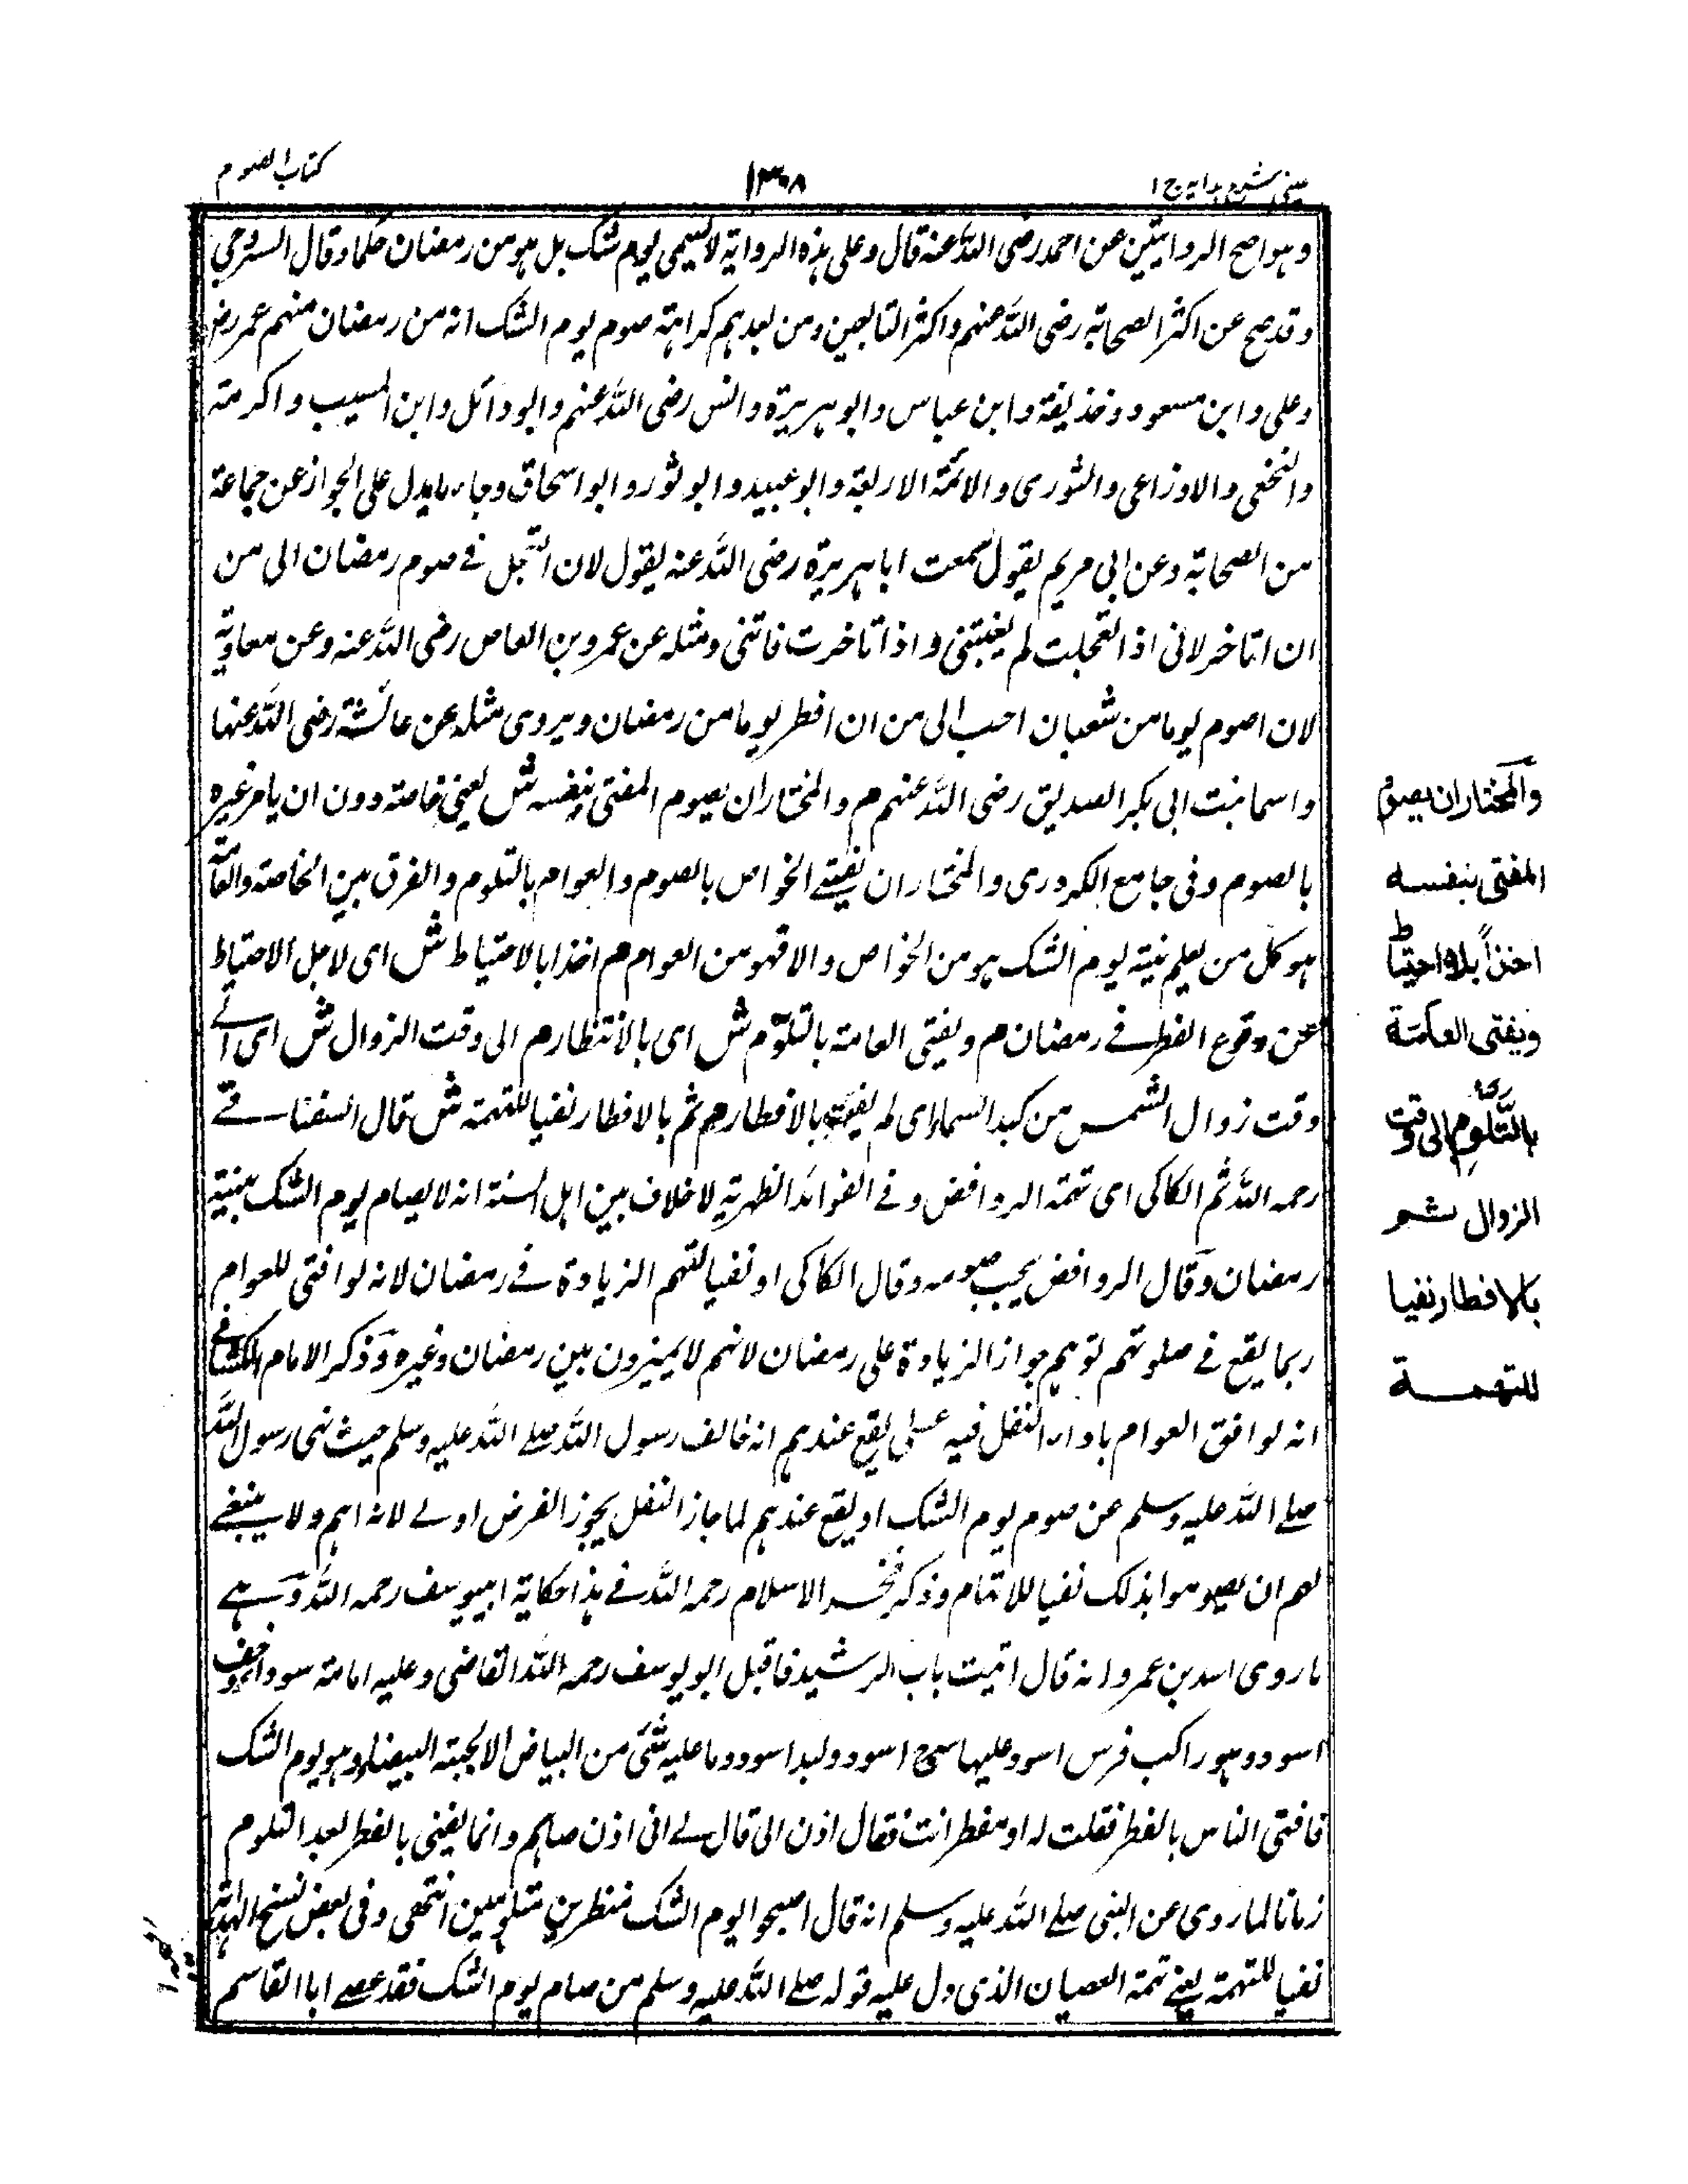 عینی شرح ہدایہ ج ۱
۱۳۰۸
کتاب الصوم
وہو اصح الروایتین عن احمد رضی اللہ عنہ قال وعلی ہذہ الروایۃ لا یسمی یوم شک بل ہو من رمضان حکما وقال السروجی
وقد صح عن اکثر الصحابۃ رضی اللہ عنہم واکثر التابعین ومن بعدہم کراہۃ صوم یوم الشک انہ من رمضان منہم عمر رض
وعلی وابن مسعود وحذیفۃ وابن عباس وابو ہریرۃ وانس رضی اللہ عنہم وابو وائل وابن المسیب واکرمتہ
والنخعی والاوزاعی والثوری والائمۃ الاربعۃ وابو عبید وابو ثور وابو اسحاق وجاء ما یدل علی الجواز عن جماعۃ
من الصحابۃ وعن ابی مریم یقول سمعت ابا ہریرۃ رضی اللہ عنہ یقول لان اتعجل فے صوم رمضان الی من
ان اتاخر لانی اذا تعجلت لم یفتنی واذا تاخرت فاتنی ومثلہ عن عمرو بن العاص رضی اللہ عنہ وعن معاویۃ
لان اصوم یوما من شعبان احب الی من ان افطر یوما من رمضان ویروی مثلہ عن عائشۃ رضی اللہ عنہا
واسما بنت ابی بکر الصدیق رضی اللہ عنہم م والمختار ان یصوم المفتی بنفسہ ش یعنی خاصۃ دون ان یامر غیرہ
بالصوم وفی جامع الکردری والمختار ان یفتے الخواص بالصوم والعوام بالتلوم والفرق بین الخاصۃ والعامۃ
ہو کل من یعلم نیۃ یوم الشک ہو من الخواص والا فہو من العوام م اخذا بالاحتیاط ش ای لاجل الاحتیاط
عن وقوع الفطر فے رمضان م ویفتی العامۃ بالتلوّم ش ای بالانتظار م الی وقت الزوال ش ای الے
وقت زوال الشمس من کبد السماء ای لم یفتہ بالافطار م ثم بالافطار نفیا للتہمۃ ش قال السغناقے
رحمہ اللہ ثم الکاکی ای تہمۃ الروافض وفے الفوائد الظہریۃ لا خلاف بین اہل السنۃ انہ لا یصام یوم الشک بنیۃ
رمضان وقال الروافض یجب صومہ وقال الکاکی او نفیا لتہم الزیادۃ فے رمضان لانہ لو افتی للعوام
ربما یقع فے صلوتہم توہم جواز الزیادۃ علی رمضان لانہم لا یمیزون بین رمضان وغیرہ وذکر الامام الکشافے
انہ لو افق العوام باداء النفل فیہ عسی یقع عندہم انہ خالف رسول اللہ صلے اللہ علیہ وسلم حیث نہی رسول اللہ
صلے اللہ علیہ وسلم عن صوم یوم الشک او یقع عندہم لما جاز النفل یجوز الفرض اولے لانہ اہم ولا ینبغے
لہم ان یصوموا بذلک نفیا للاتہام وذکر فخر الاسلام رحمہ اللہ فے ہذا حکایۃ ابیوسف رحمہ اللہ وہے
ما روی اسد بن عمرو انہ قال اتیت باب الرشید فاقبل ابو یوسف رحمہ اللہ القاضی وعلیہ امامۃ سوداء وخف
اسود وہو راکب فرس اسود علیہا سرج اسود ولبد اسود وما علیہ شئی من البیاض الا لحیتہ البیضاء وہو یوم الشک
فافتی الناس بالفطر فقلت لہ او مفطر انت فقال ادن الی قال لے انی اذن صایم وانما یفتی بالفطر بعد التلوم
زمانا لما روی عن النبی صلے اللہ علیہ وسلم انہ قال اصبحوا یوم الشک منظرین متلومین انتہی وفی بعض نسخ الہدایۃ
نفیا للتہمۃ یعنے تہمۃ العصیان الذی دل علیہ قولہ صلے اللہ علیہ وسلم من صام یوم الشک فقد عصے ابا القاسم
والمختار ان یصوم
المفتی بنفسہ
اخذاً بالاحتیاط
ویفتی العامّۃ
بالتَّلَوُّمِ الی وقت
الزوال ثم
بالافطار نفیا
للتہمۃ